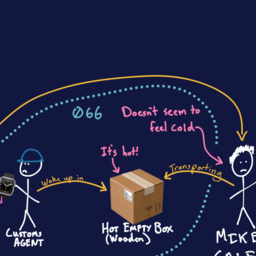 066
Doesn't seem to
feel cold
It's hot!
Woke up in
Transporting
CUSTOMS
AGENT
HOT EMPTY BOX
(Wooden)
MIKE